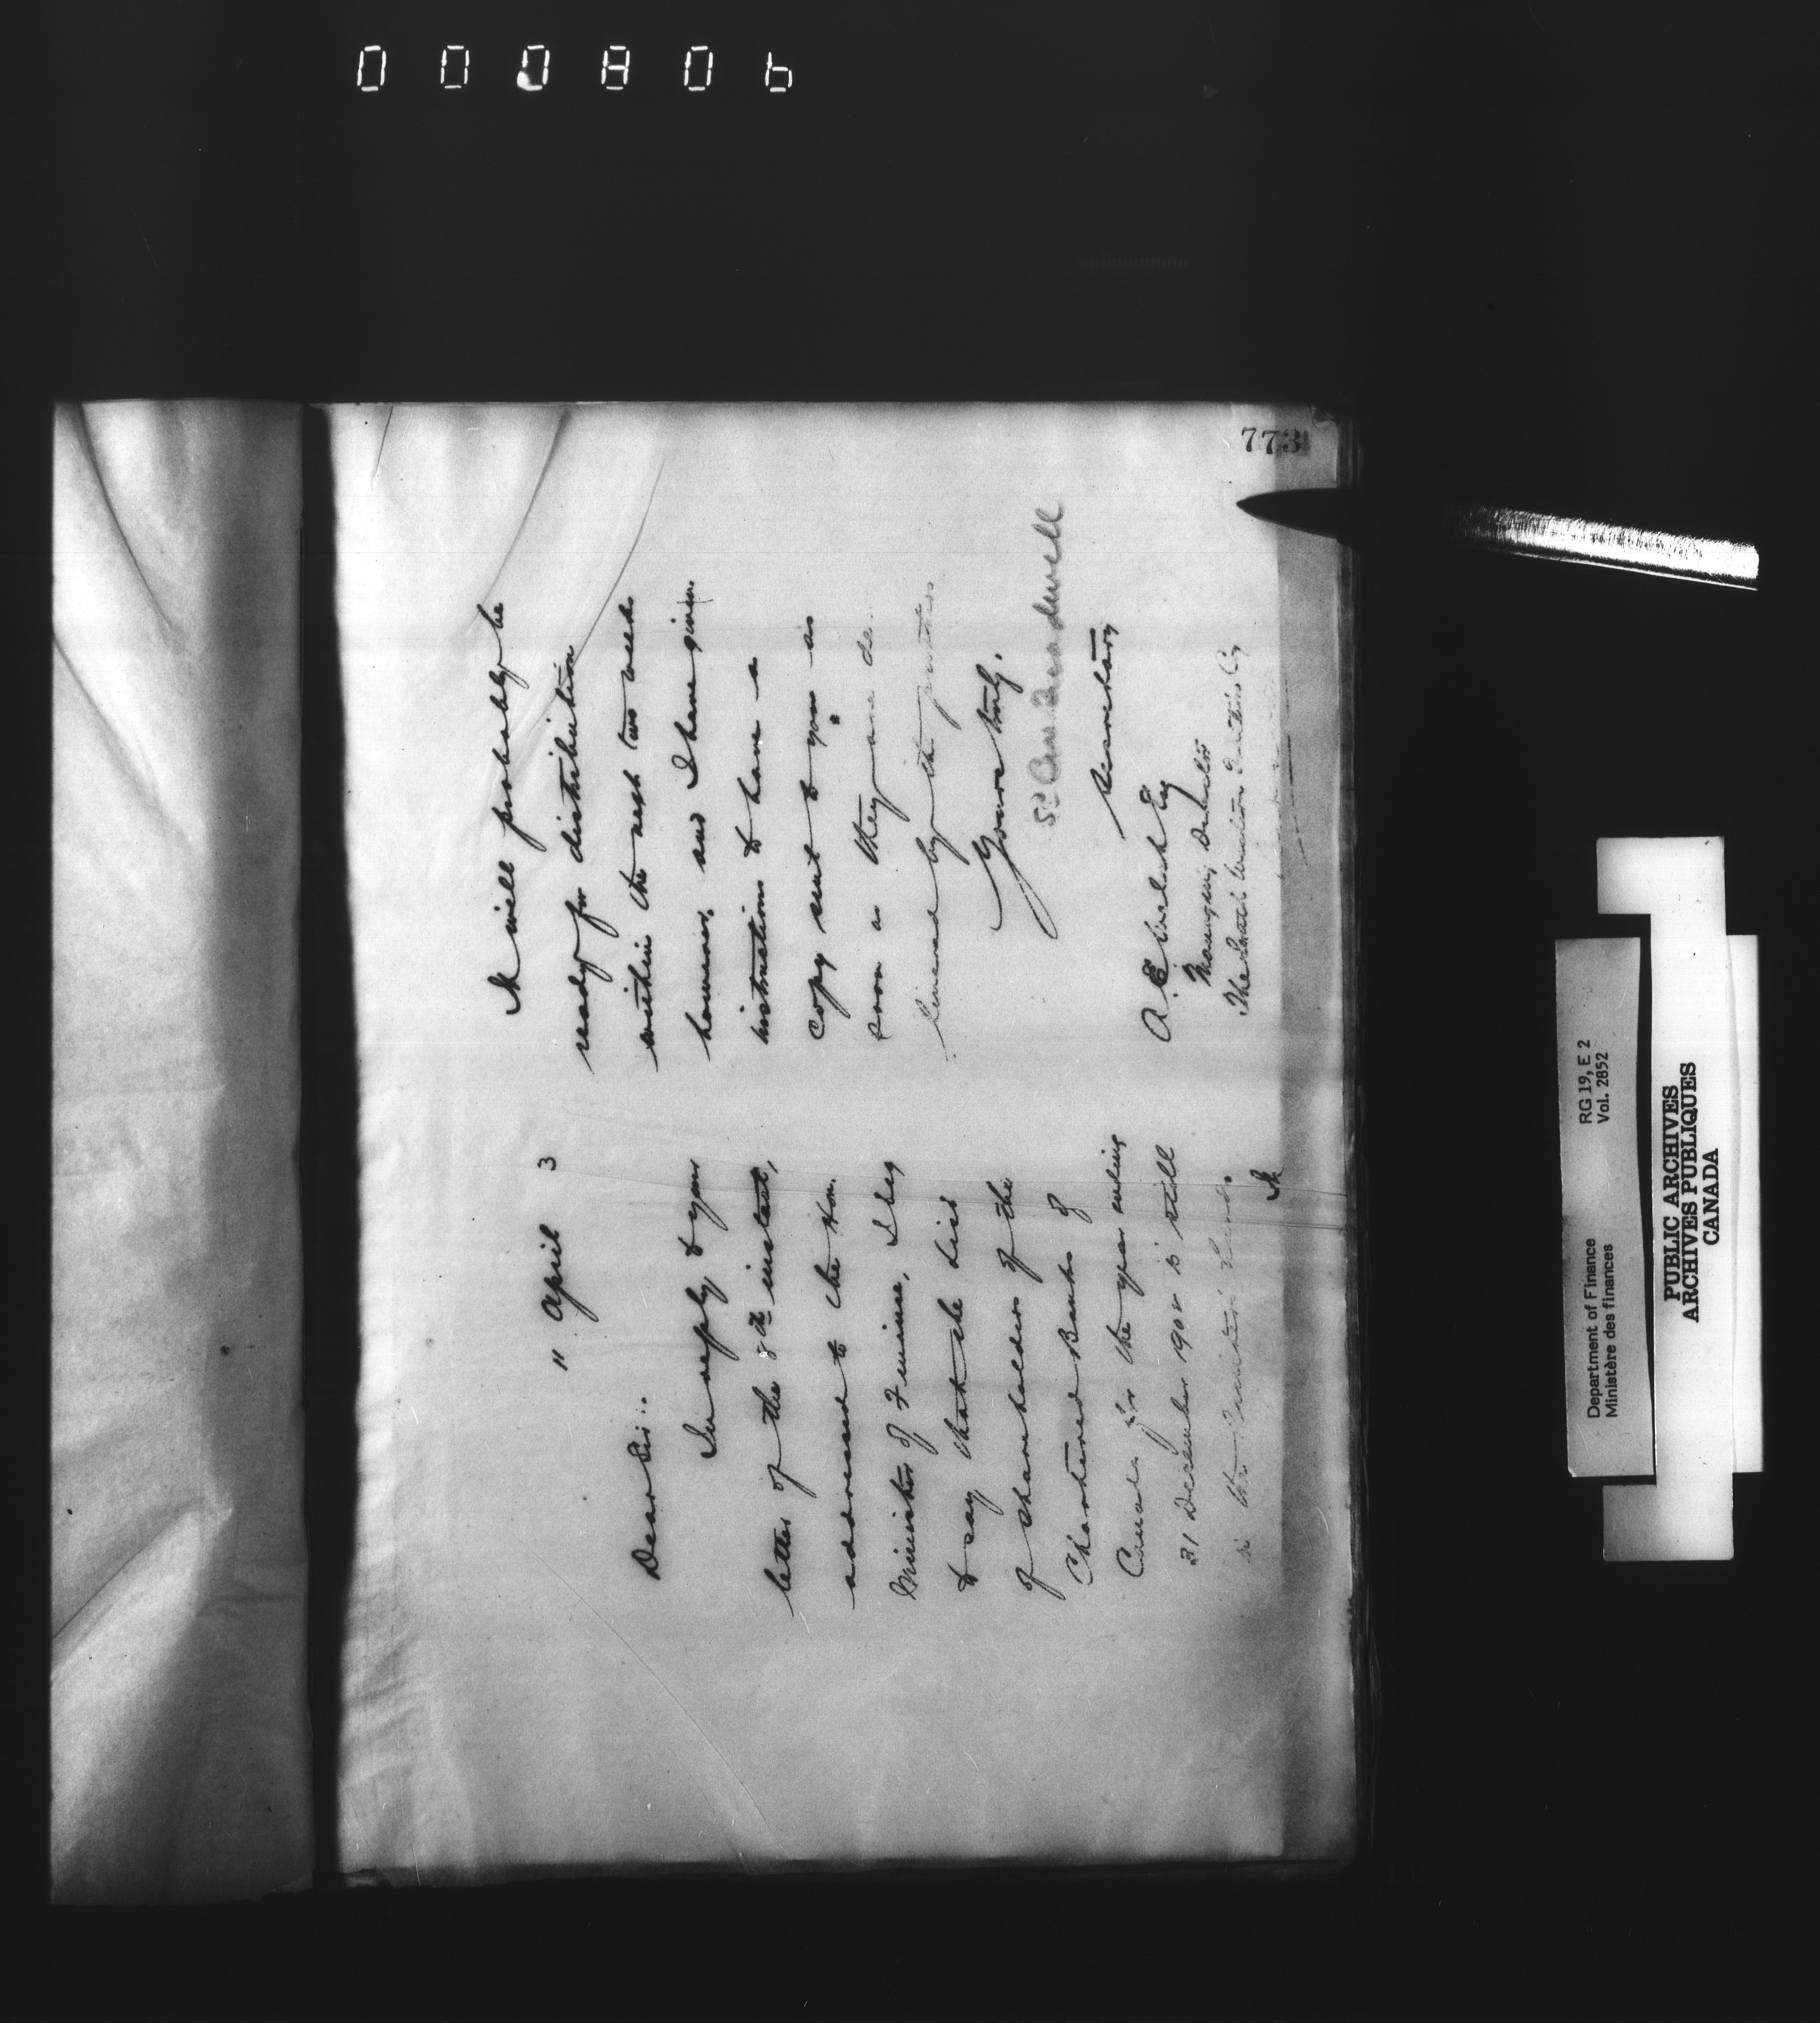 000806
773
11 April 3
Dear Sir:
In reply to your
letter of the 8th instant,
addressed to the Hon.
Minister of Finance, I beg
to say that the list
of shareholders of the
Chartered Banks of
Canada for the year ending
31 December 1902 is still
in the hands.
It
It will probably be
ready for distribution
within the next two weeks
however, and I have given
instructions to have a
copy sent to you as
soon as they are de-
livered by the printers
Yours truly.
Secretary
A. E.
Managing Director
The
Department of Finance RG 19, E 2
Ministère des finances Vol. 2852
PUBLIC ARCHIVES
ARCHIVES PUBLIQUES
CANADA